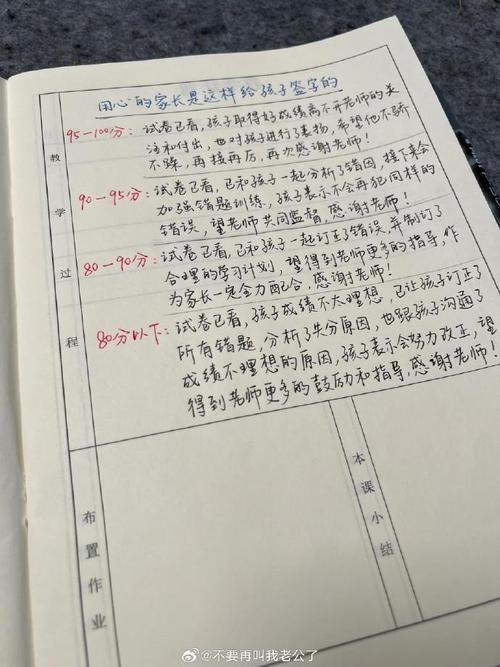 用心的家长是这样给孩子签字的
95-100分：试卷已看，孩子取得好成绩离不开老师的关
注和付出，也对孩子进行了表扬，希望他不骄
不躁，再接再厉，再次感谢老师！
90-95分：试卷已看，已和孩子一起分析了错因，接下来会
加强错题训练，孩子表示不会再犯同样的
错误，望老师共同监督，感谢老师！
80-90分：试卷已看，已和孩子一起订正了错误，并制订了
合理的学习计划，望得到老师更多的指导，作
为家长一定全力配合，感谢老师！
80分以下：试卷已看，孩子成绩不太理想，已让孩子订正了
所有错题，分析了失分原因，也跟孩子沟通了
成绩不理想的原因，孩子表示会努力改正，望
得到老师更多的鼓励和指导，感谢老师！
教学过程
布置作业
本课小结
@不要再叫我老公了